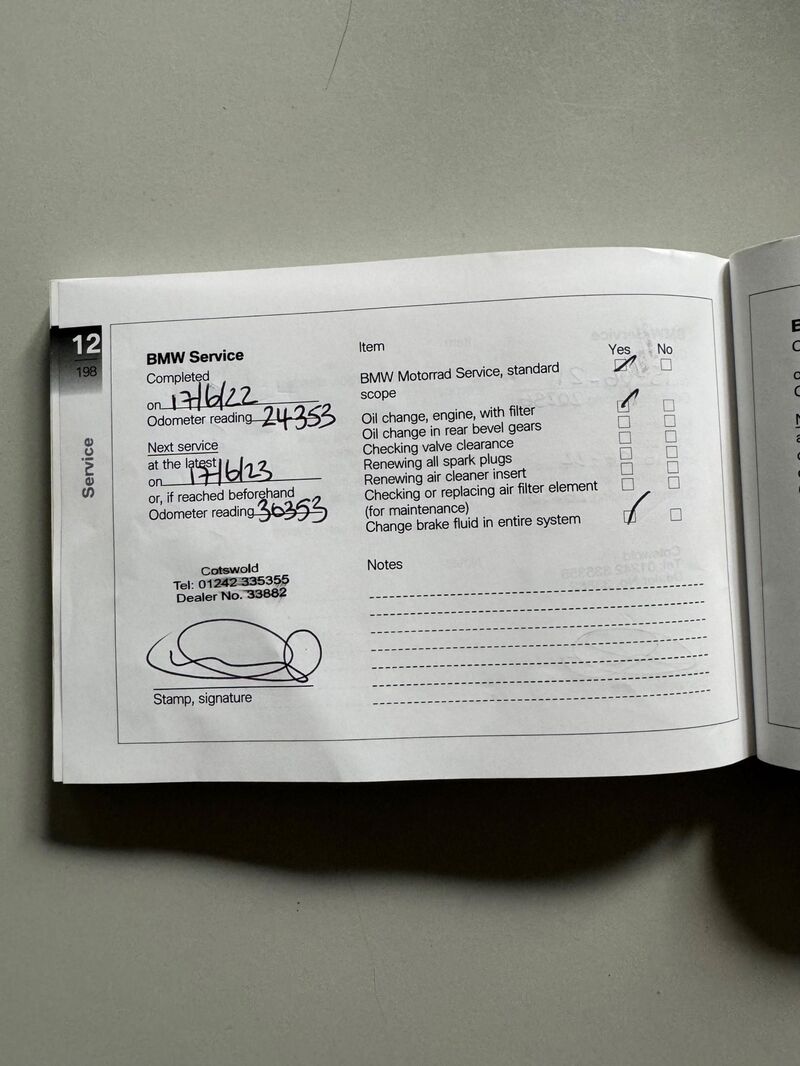 12
198
Service
BMW Service
Completed
on 17/6/22
Odometer reading 24353
Next service
at the latest
on 17/6/23
or, if reached beforehand
Odometer reading 36353
Cotswold
Tel: 01242 335355
Dealer No. 33882
Stamp, signature
Item
Yes No
BMW Motorrad Service, standard
scope
Oil change, engine, with filter
Oil change in rear bevel gears
Checking valve clearance
Renewing all spark plugs
Renewing air cleaner insert
Checking or replacing air filter element
(for maintenance)
Change brake fluid in entire system
Notes